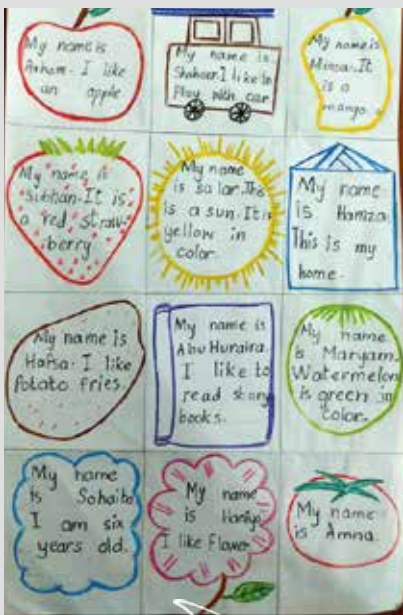 My name is
Arham. I like
an apple
My name is
Shaheer. I like to
Play with car
My name is
Mirsa. It
is a
mango.
My name is
Subhan. It is
a red straw-
berry
My name
is Salar. This
is a sun. It is
yellow in
color.
My name
is Hamza.
This is my
home.
My name is
Hafsa. I like
Potato fries.
My name is
Abu Huraira.
I like to
read story
books.
My name
is Maryam.
Watermelon
is green in
color.
My name
is Sohaib
I am six
years old.
My name
is Haniya
I like Flower
My name
is Amna.